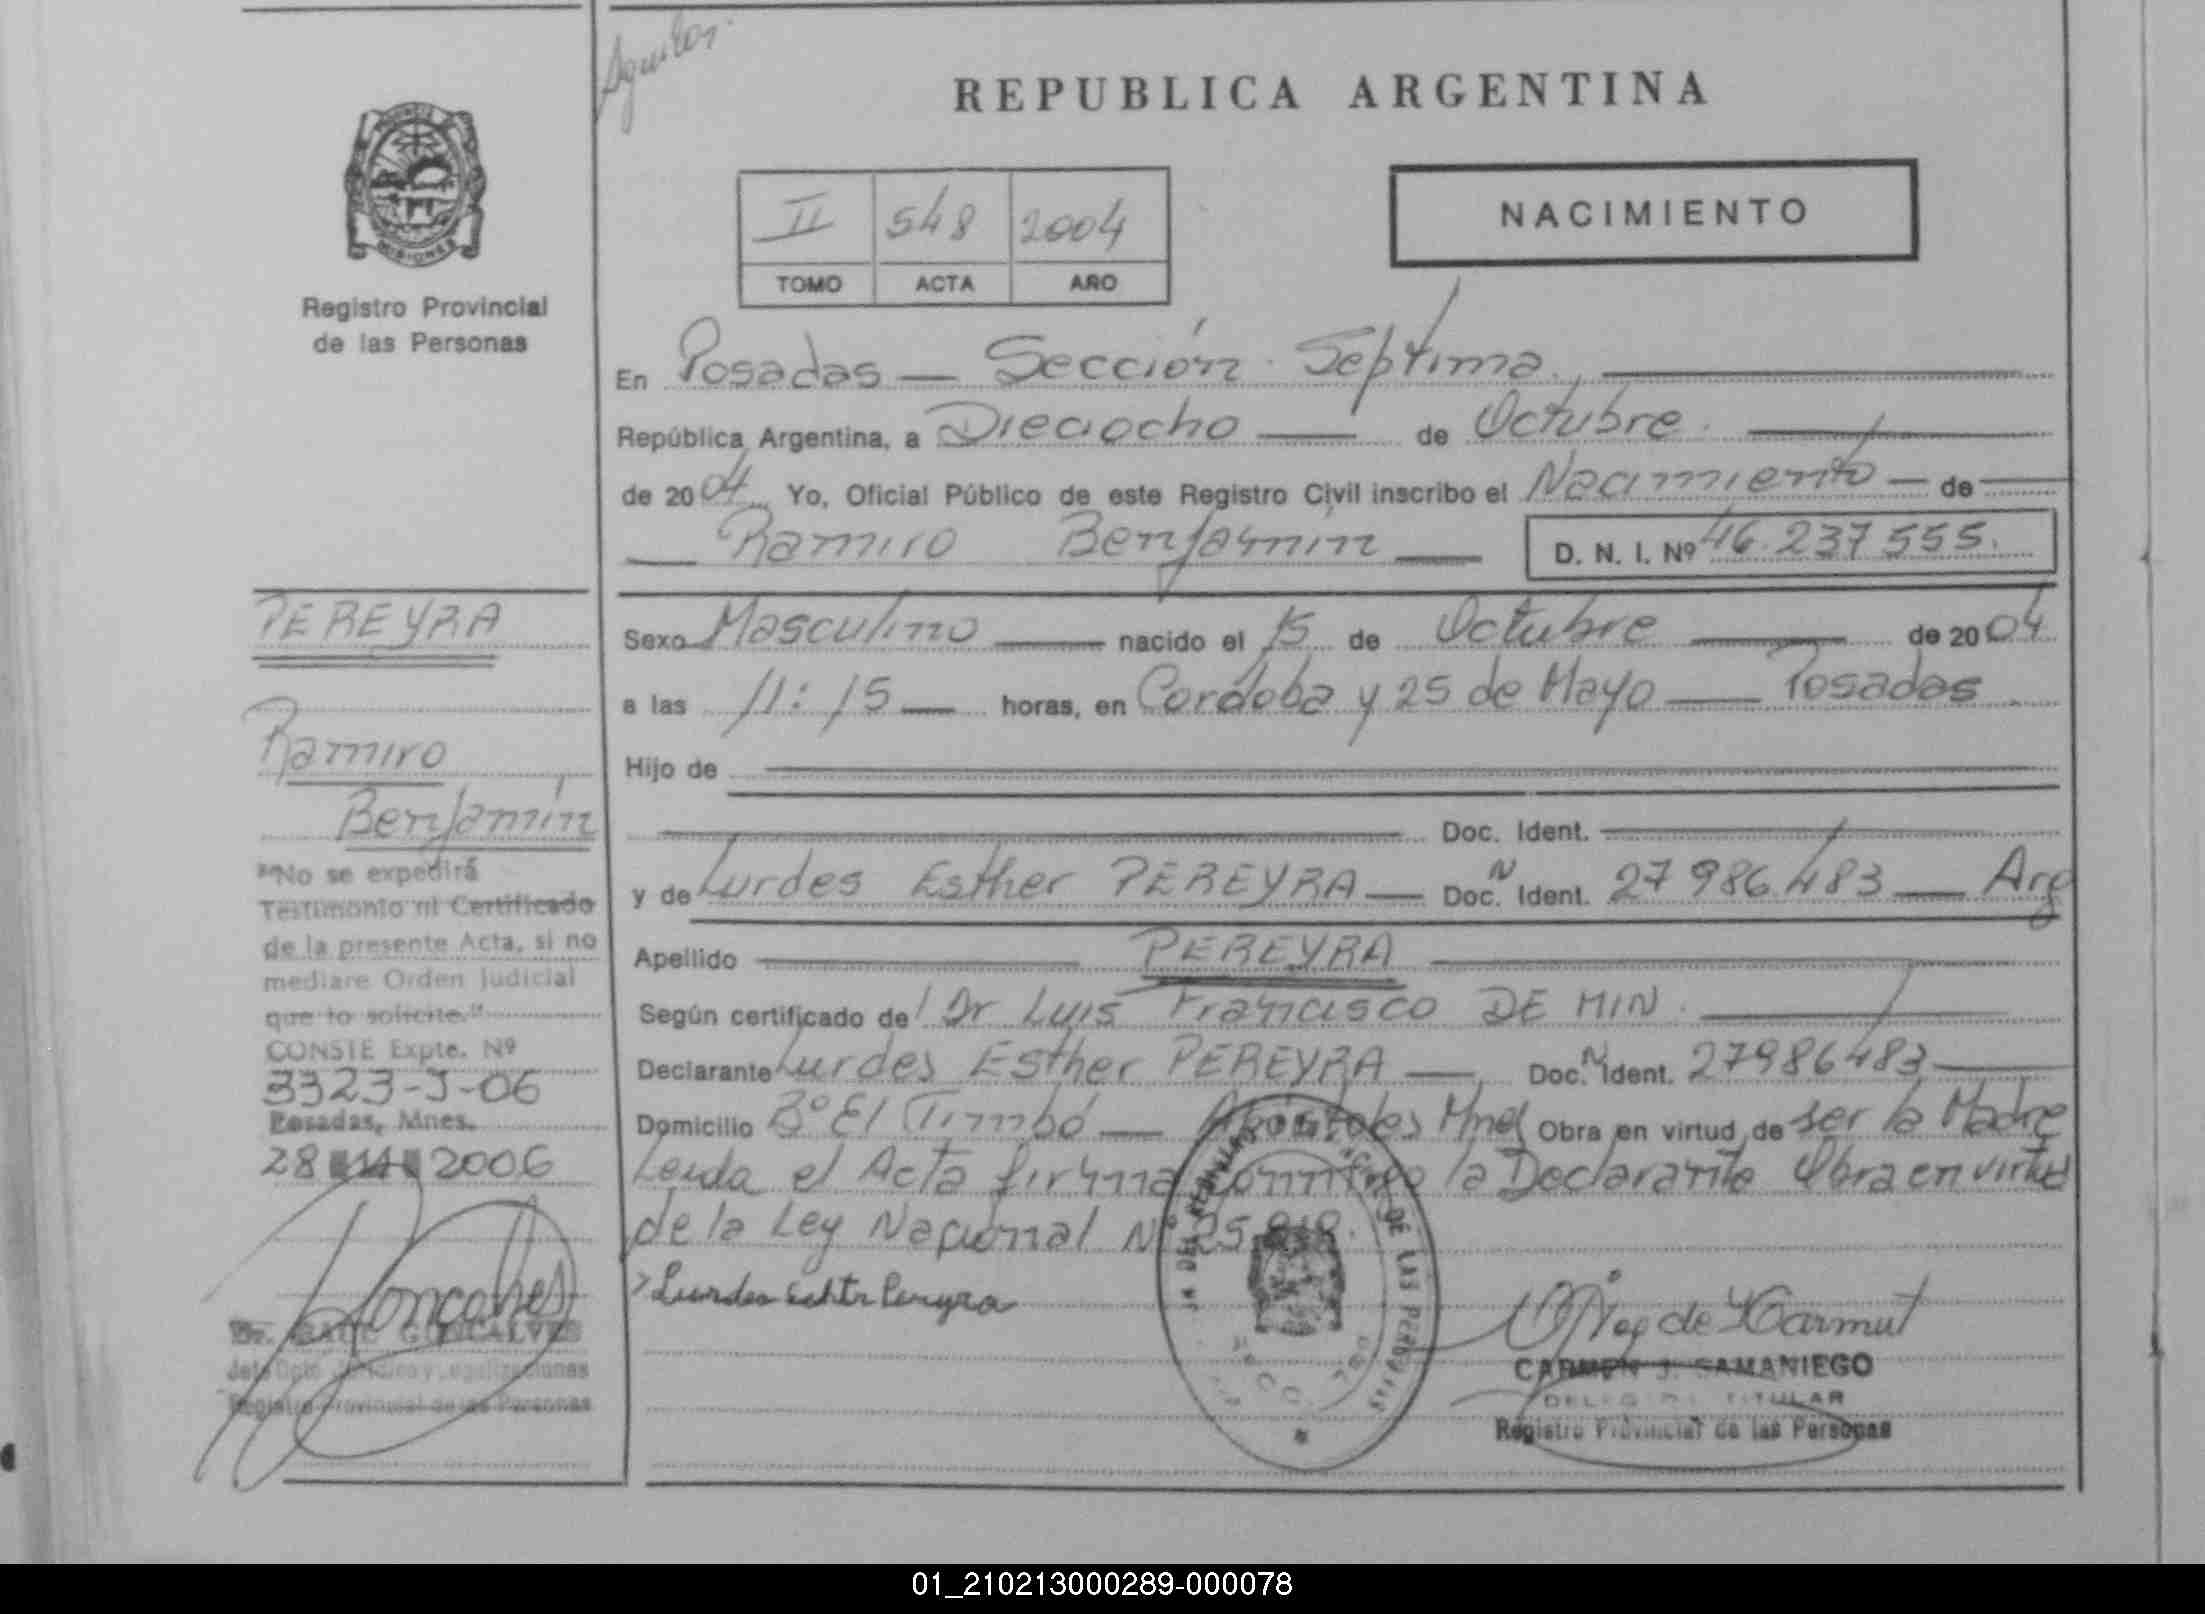 Aguilar.
REPUBLICA ARGENTINA
MISIONES
Registro Provincial
de las Personas
II 548 2004
TOMO ACTA AÑO
NACIMIENTO
En Posadas — Sección Septima.
República Argentina, a Dieciocho — de Octubre.
de 2004 Yo, Oficial Público de este Registro Civil inscribo el Nacimiento — de
Ramiro Benjamín — D. N. I. Nº 46.237 555.
Sexo Masculino — nacido el 15 de Octubre — de 2004
a las 11:15 — horas, en Cordoba y 25 de Mayo — Posadas
Hijo de
Doc. Ident.
y de Lurdes Esther PEREYRA — Doc. N Ident. 27 986.483 — Arg
Apellido PEREYRA
Según certificado de Dr Luis Francisco DE MIN.
Declarante Lurdes Esther PEREYRA — Doc. N Ident. 27986483
Domicilio Bº El Timbó — Apóstoles Mnes Obra en virtud de ser la Madre
Leida el Acta firma conmigo la Declarante Obra en virtud
de la Ley Nacional Nº 25.818.
Lurdes Pereyra
CARMEN J. SAMANIEGO
TITULAR
Registro Provincial de las Personas
PEREYRA
Ramiro
Benjamín
"No se expedirá
Testimonio ni Certificado
de la presente Acta, si no
mediare Orden Judicial
que lo solicite."
CONSTE Expte. Nº
3323-J-06
Posadas, Mnes.
28 2006
Goncalves
Dr. GONCALVES
Jefe Dpto. Jurídico y Legalizaciones
Registro Provincial de las Personas
DE LAS PERSONAS
01_210213000289-000078